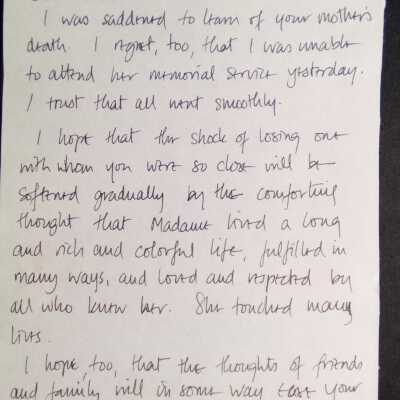 I was saddened to learn of your mother's
death. I regret, too, that I was unable
to attend her memorial service yesterday.
I trust that all went smoothly.
I hope that the shock of losing one
with whom you were so close will be
softened gradually by the comforting
thought that Madame lived a long
and rich and colorful life, fulfilled in
many ways, and loved and respected by
all who knew her. She touched many
lives.
I hope, too, that the thoughts of friends
and family will in some way ease your